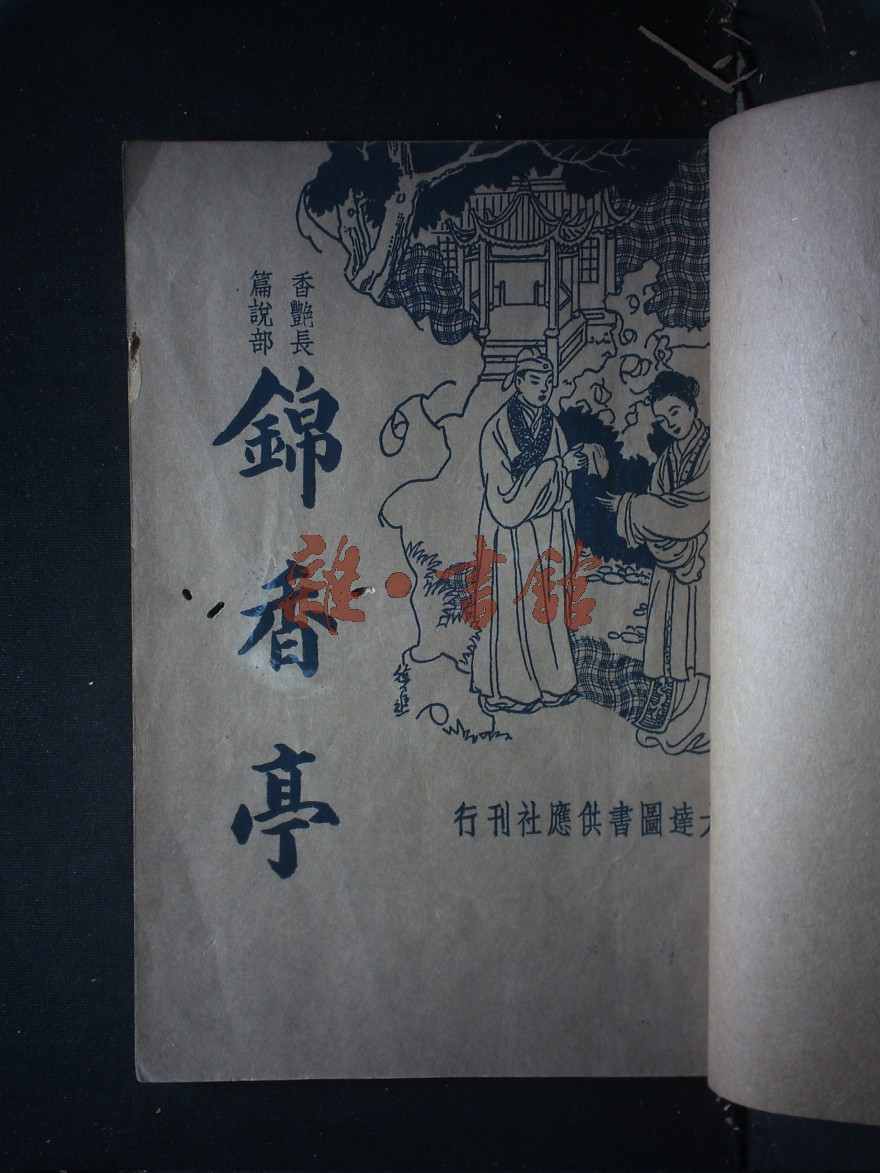 香艷長
篇說部
錦香亭
雜·書館
大達圖書供應社刊行